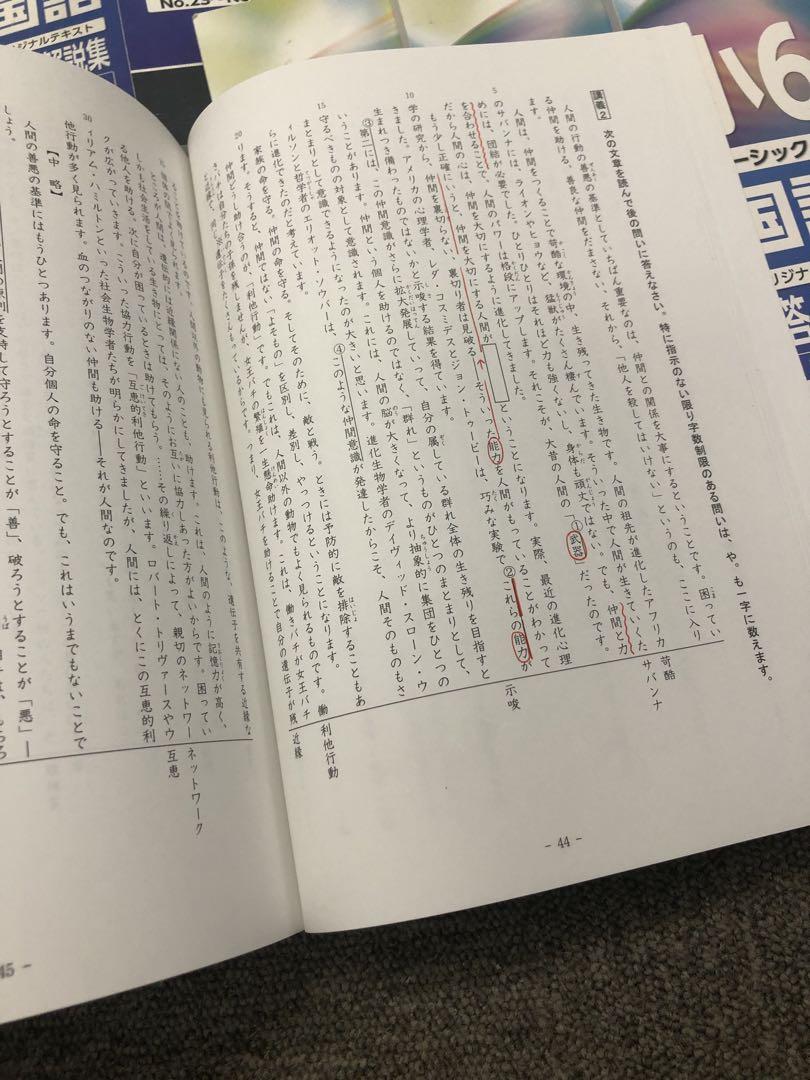 国語
ジナルテキスト
解説集
No.23
い6
ーシック
国語
リジナル
答
講義2 次の文章を読んで後の問いに答えなさい。特に指示のない限り字数制限のある問いは、や。も一字に数えます。
人間の行動の善悪の基準としていちばん重要なのは、仲間との関係を大事にするということです。困ってい
る仲間を助ける、善良な仲間をだまさない、それから、「他人を殺してはいけない」というのも、ここに入り
ます。
人間は、仲間をつくることで苛酷な環境の中、生き残ってきた生き物です。人間の祖先が進化したアフリカ
5
のサバンナには、ライオンやヒョウなど、猛獣がたくさん棲んでいます。そういった中で人間が生きていくた
めには、団結が必要でした。ひとりひとりはそれほど力も強くないし、身体も頑丈ではない。でも、仲間と力
を合わせることで、人間のパワーは格段にアップします。それこそが、大昔の人間の「①武器」だったのです。
だから人間の心は、仲間を大切にするように進化してきました。
もう少し正確にいうと、仲間を大切にする人間が
ということになります。実際、最近の進化心理
10
学の研究から、仲間を裏切らない、裏切り者は見破る
そういった能力を人間がもっていることがわかって
きました。アメリカの心理学者、レダ・コスミデスとジョン・トゥービーは、巧みな実験で②これらの能力が
生まれつき備わったものではないかと示唆する結果を得ています。
③第二には、この仲間意識がさらに拡大発展していって、自分の属している群れ全体の生き残りを目指すと
いうことがあります。仲間という個人を助けるのではなく、「群れ」というものがひとつのまとまりとして、
15
守るべきものの対象として意識されます。これには、人間の脳が大きくなって、より抽象的に集団をひとつの
まとまりとして意識できるようになったのが大きいと思います。進化生物学者のデイヴィッド・スローン・ウ
ィルソンと哲学者のエリオット・ソウバーは、④このような仲間意識が発達したからこそ、人間そのものもさ
らに進化できたのだと考えています。
家族の命を守る、仲間の命を守る、そしてそのために、敵と戦う。ときには予防的に敵を排除することもあ
20
ります。そうすると、仲間ではない「よそもの」を区別し、差別し、やっつけるということになります。
仲間どうし助け合うのが、「利他行動」です。でもこれは、人間以外の動物でもよく見られるものです。働
きバチは自分たちの子孫を残しませんが、女王バチの繁殖を一生懸命助けます。これは、働きバチが女王バチ
をたくさんもっているからです。つまり、女王バチを助けることで自分の遺伝子が残
苛酷
サバンナ
示唆
利他行動
近縁
- 44 -
このような、遺伝子を共有する近縁な
ところが人間は、遺伝的には近縁関係にない人のことも、助けます。これは、人間のように記憶力が高く、
しかも社会生活をしている生き物にとっては、そのようにお互いに協力しあった方がよいからです。困ってい
る他人を助ける。次に自分が困っているときは助けてもらう。……その繰り返しによって、親切のネットワー
クが広がっていきます。こういった協力行動を「互恵的利他行動」といいます。ロバート・トリヴァースやウ
30
ィリアム・ハミルトンといった社会生物学者たちが明らかにしてきましたが、人間には、とくにこの互恵的利
他行動が多く見られます。血のつながりのない仲間も助ける――それが人間なのです。
【中 略】
人間の善悪の基準にはもうひとつあります。自分個人の命を守ること。でも、これはいうまでもないことで
しょう。
を支持して守ろうとすることが「善」、破ろうとすることが「悪」――
ネットワーク
互恵
45 -